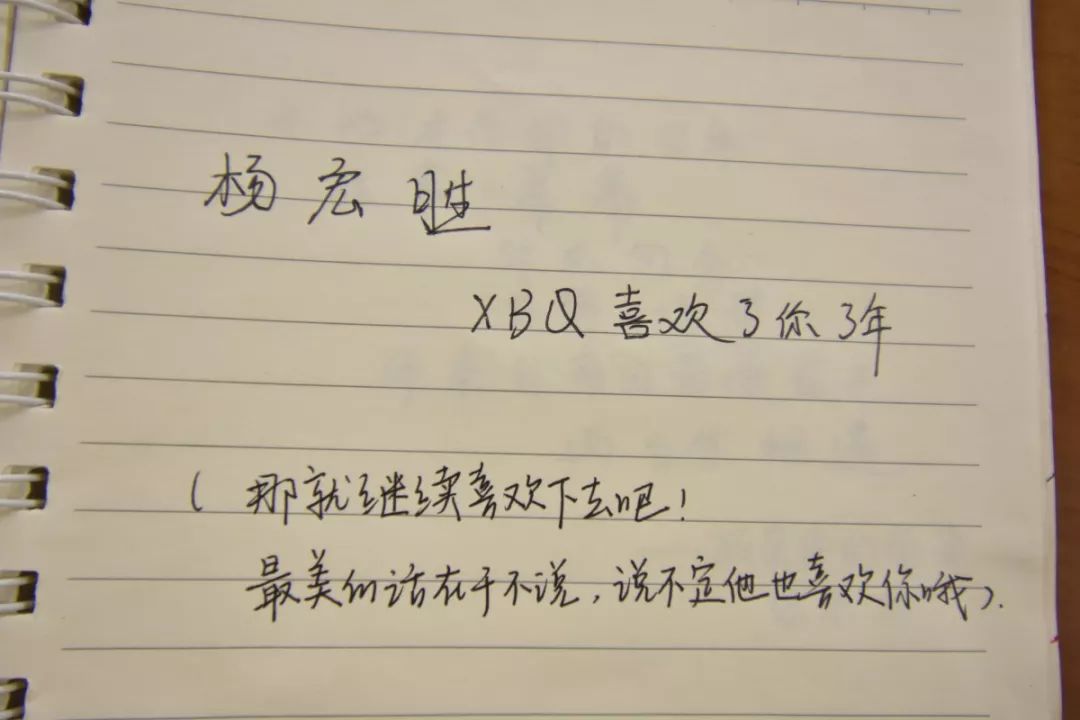 杨宏
XBQ喜欢了你了年
(那就继续喜欢下去吧!
最美的话在于不说,说不定他也喜欢你哦).